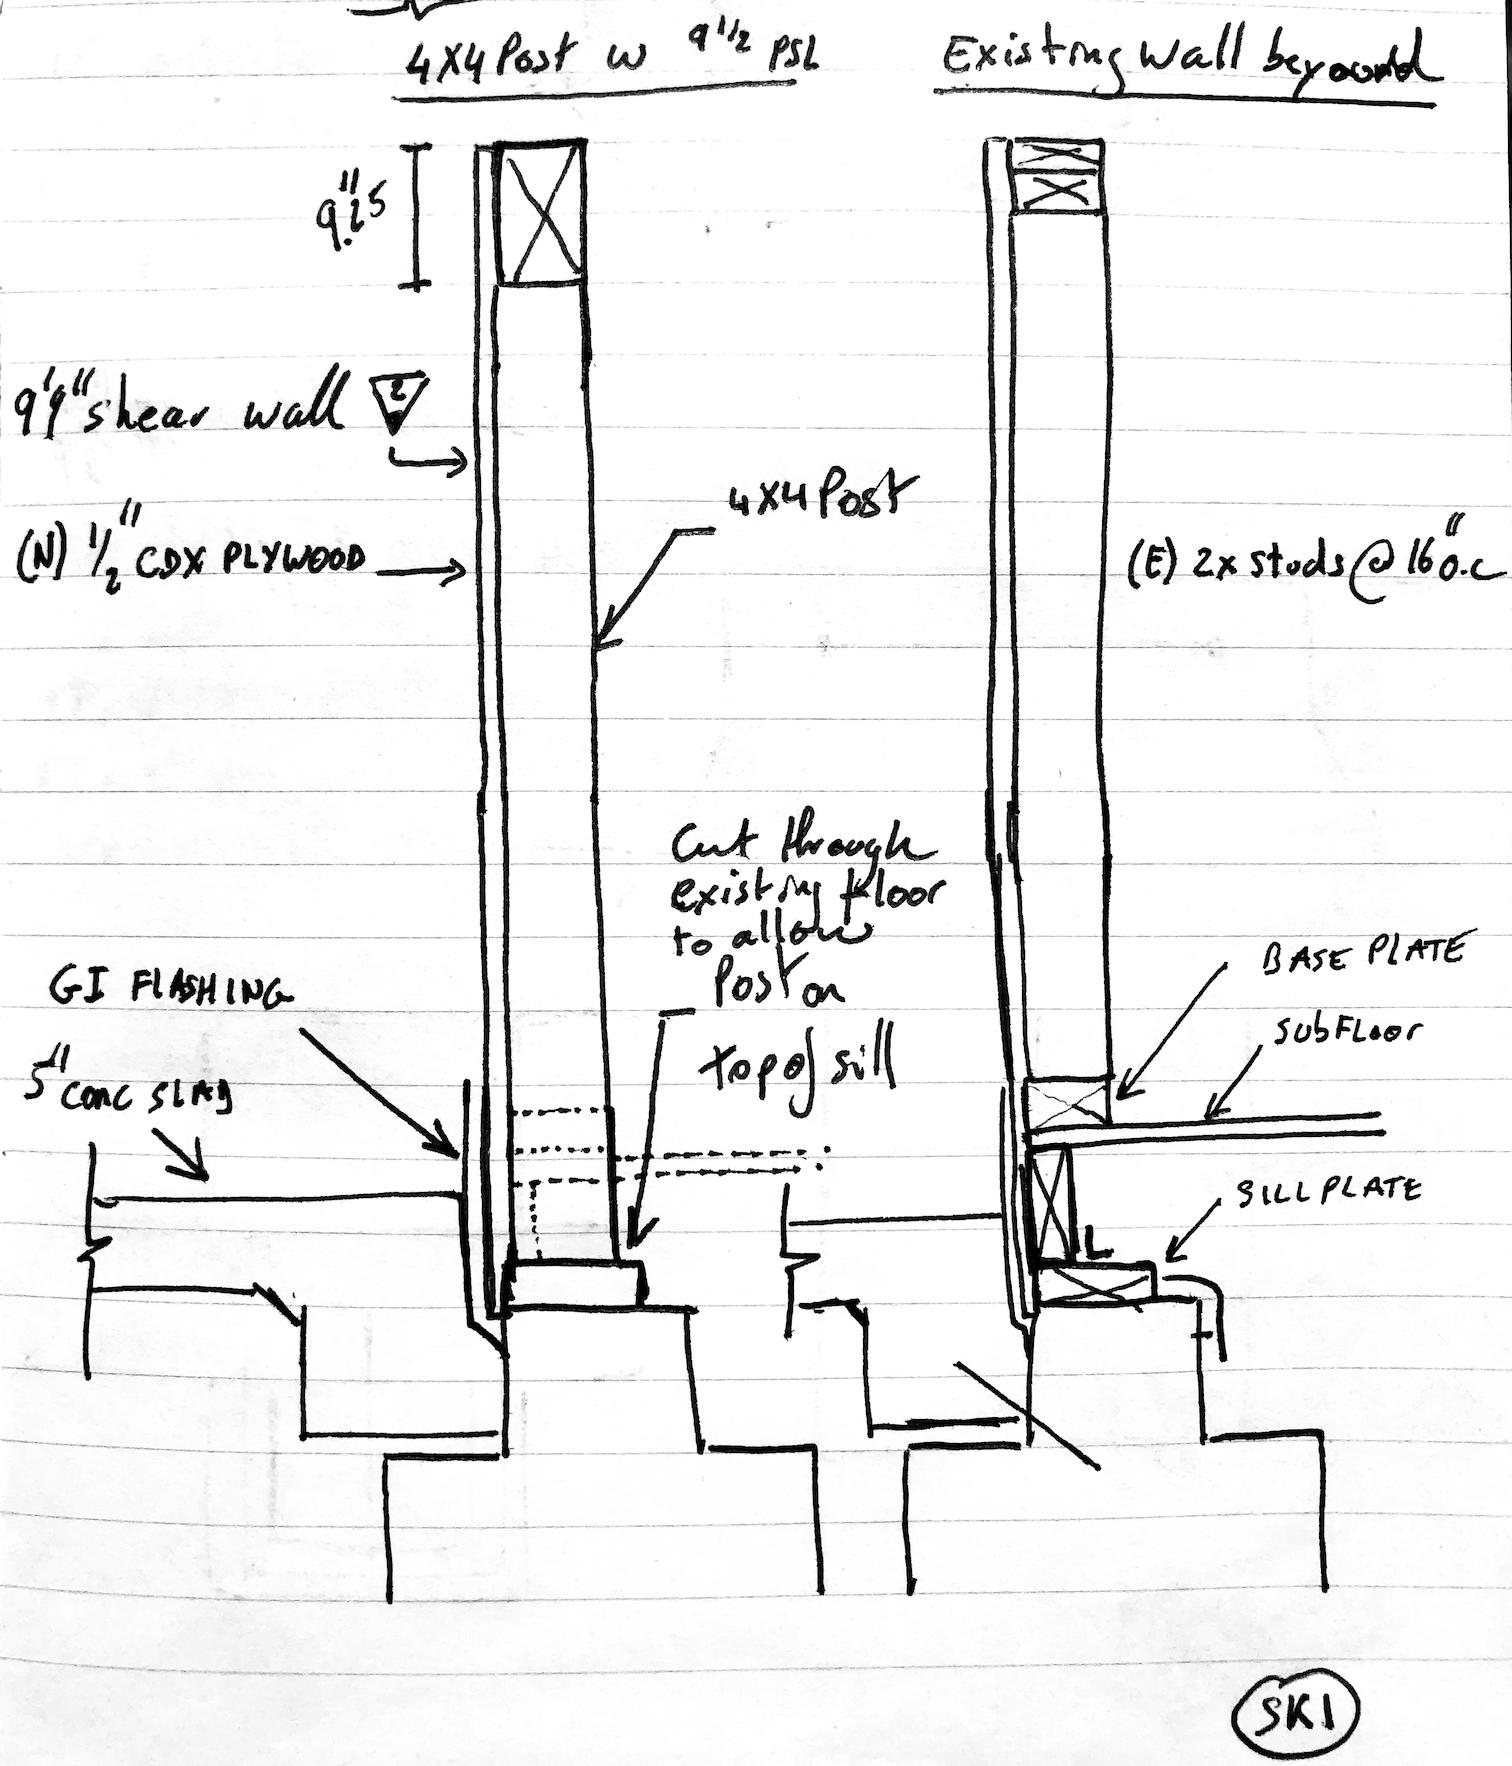 4X4 Post w 9 1/2 PSL
Existing Wall beyound
9.25"
9'9" shear wall 2
(N) 1/2" CDX PLYWOOD
4X4 Post
(E) 2x studs @ 16" o.c
Cut through
existing floor
to allow
Post on
top of sill
GI FLASHING
5" CONC SLAB
BASE PLATE
SUBFLOOR
SILL PLATE
SK1